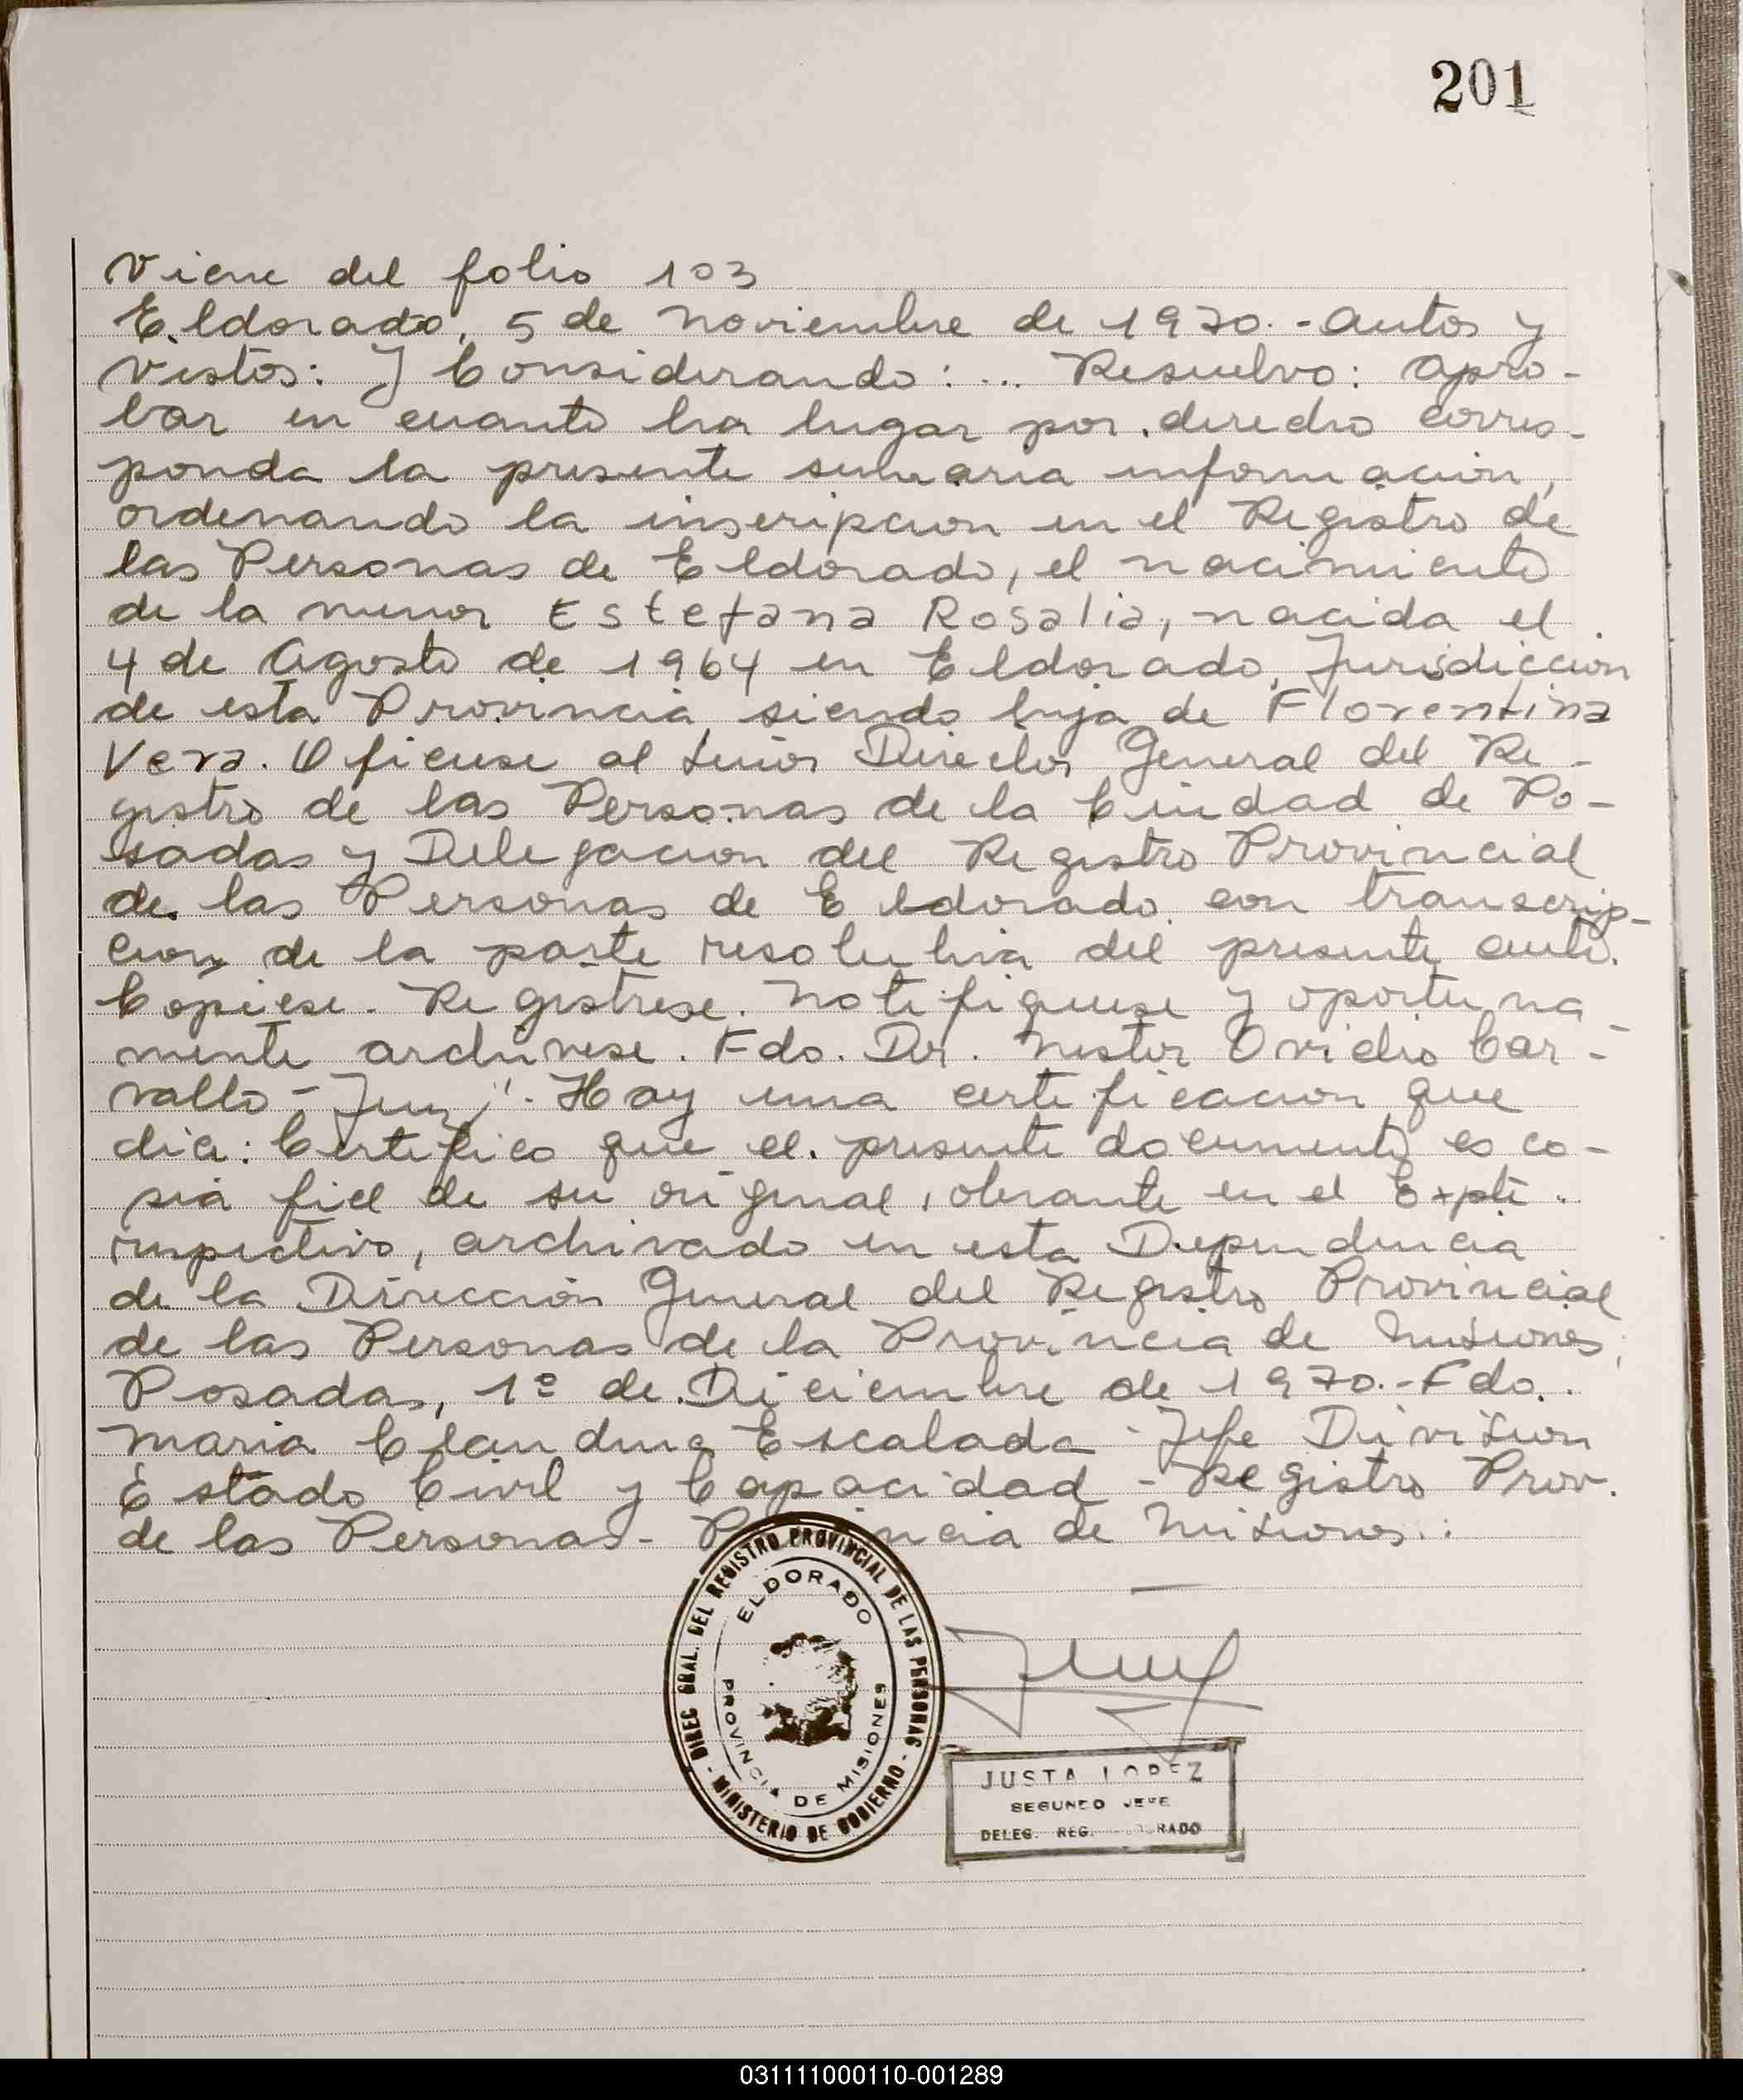 201
Viene del folio 103
Eldorado, 5 de Noviembre de 1970.- Autos y
Vistos: Y Considerando: ... Resuelvo: Apro-
bar en cuanto ha lugar por derecho corres-
ponda la presente sumaria informacion,
ordenando la inscripcion en el Registro de
las Personas de Eldorado, el nacimiento
de la menor Estefana Rosalia, nacida el
4 de Agosto de 1964 en Eldorado, Jurisdiccion
de esta Provincia, siendo hija de Florentina
Vera. Oficiese al Señor Director General del Re-
gistro de las Personas de la Ciudad de Po-
sadas y Delegacion del Registro Provincial
de las Personas de Eldorado con transcrip-
cion de la parte resolutiva del presente auto.
Copiese. Registrese. Notifiquese y oportuna-
mente archivese. Fdo. Dr. Nestor Ovidio Car-
vallo - Juez". Hay una certificacion que
dice: Certifico que el presente documento es co-
pia fiel de su original, obrante en el Expte.
respectivo, archivado en esta Dependencia
de la Dirección General del Registro Provincial
de las Personas de la Provincia de Misiones,
Posadas, 1º de Diciembre de 1970.- Fdo.
Maria Claudina Escalada - Jefe Division
Estado Civil y Capacidad - Registro Prov.
de las Personas - Provincia de Misiones.:
DIREC GRAL. DEL REGISTRO PROVINCIAL DE LAS PERSONAS
- MINISTERIO DE GOBIERNO -
ELDORADO
PROVINCIA DE MISIONES
JUSTA LOPEZ
SEGUNDO JEFE
DELEG. REG. ELDORADO
031111000110-001289